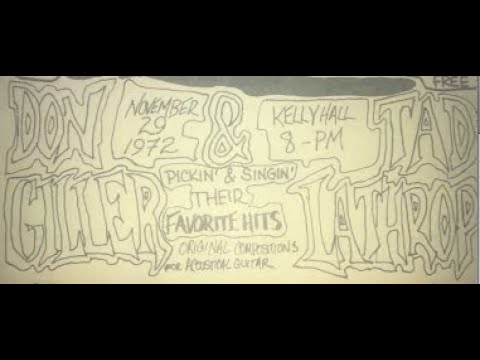 FREE
DON
NOVEMBER
29
1972
&
KELLY HALL
8-PM
TAD
GILLER
PICKIN' & SINGIN'
THEIR
FAVORITE HITS
ORIGINAL COMPOSITIONS
FOR ACOUSTICAL GUITAR
LATHROP